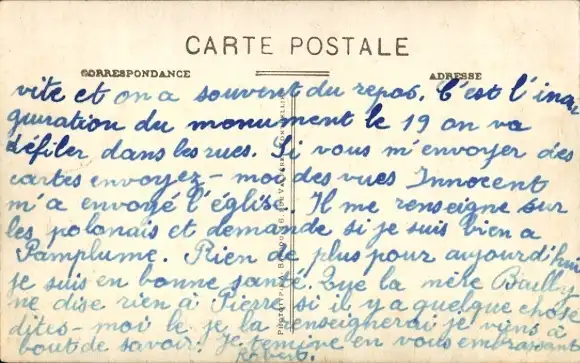 CARTE POSTALE
CORRESPONDANCE
ADRESSE
vite et on a souvent du repos. C'est l'inau
guration du monument le 19 on va
défiler dans les rues. Si vous m'envoyer des
cartes envoyez-moi des vues Innocent
m'a envoyé l'église. Il me renseigne sur
les polonais et demande si je suis bien a
Pamplume. Rien de plus pour aujourd'hui
je suis en bonne santé. Que la mère Bailly
ne dise rien à Pierre si il y a quelque chose
dites-moi le je la renseignerai je viens à
bout de savoir! Je temine en vous embrassant
Robert.